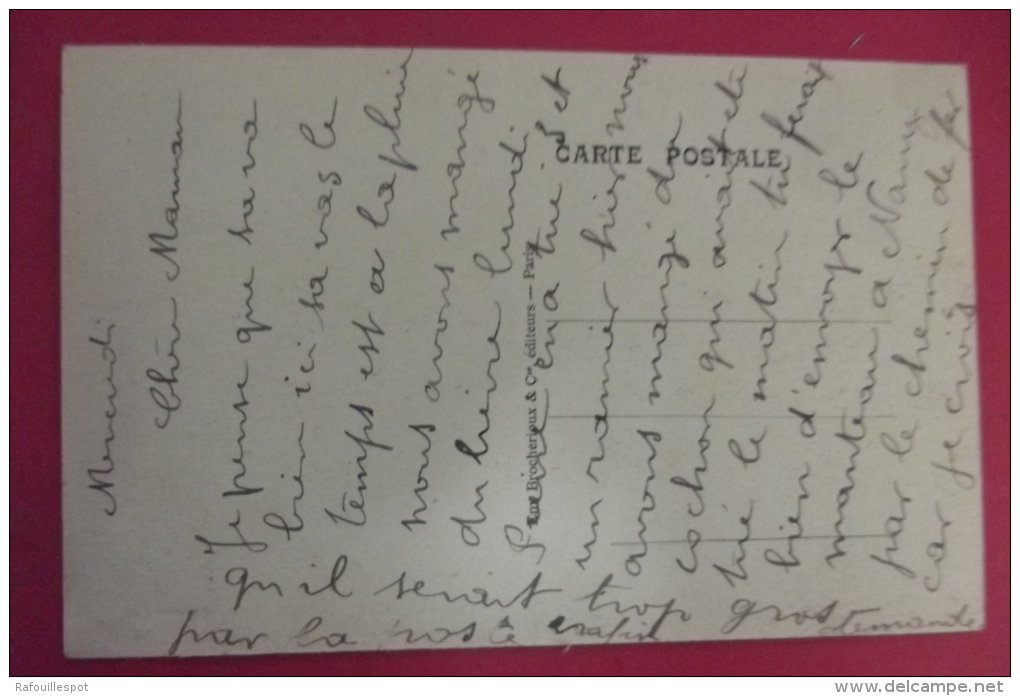 Mercredi
Chère Maman
Je pense que sa va
bien ici sa vas le
temps est a la pluie
nous avons mangé
du lièvre lundi
en a tué 5 et
un ramier hier nous
avons mangé du
cochon qui avait ete
tué le matin tu ferais
bien d'envoyer le
manteau a Namur
par le chemin de fer
car je crois
qu'il serait trop gros
par la poste enfin demande
CARTE POSTALE
Brocherioux & Cie éditeurs — Paris
Rafouillespot
delcampe.net